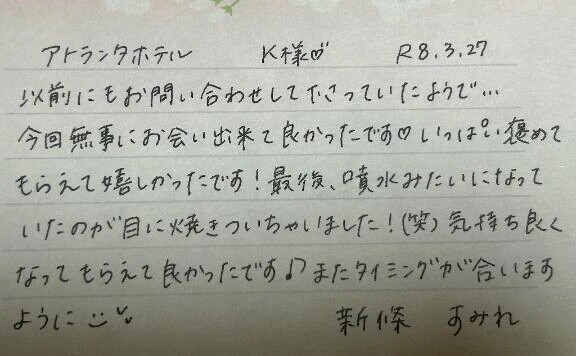 アトランタホテル K様♡ R8.3.27
以前にもお問い合わせして下さっていたようで…
今回無事にお会い出来て良かったです♡いっぱい褒めて
もらえて嬉しかったです!最後、噴水みたいになって
いたのが目に焼きついちゃいました!(笑)気持ち良く
なってもらえて良かったです♪またタイミングが合います
ように
新條 すみれ